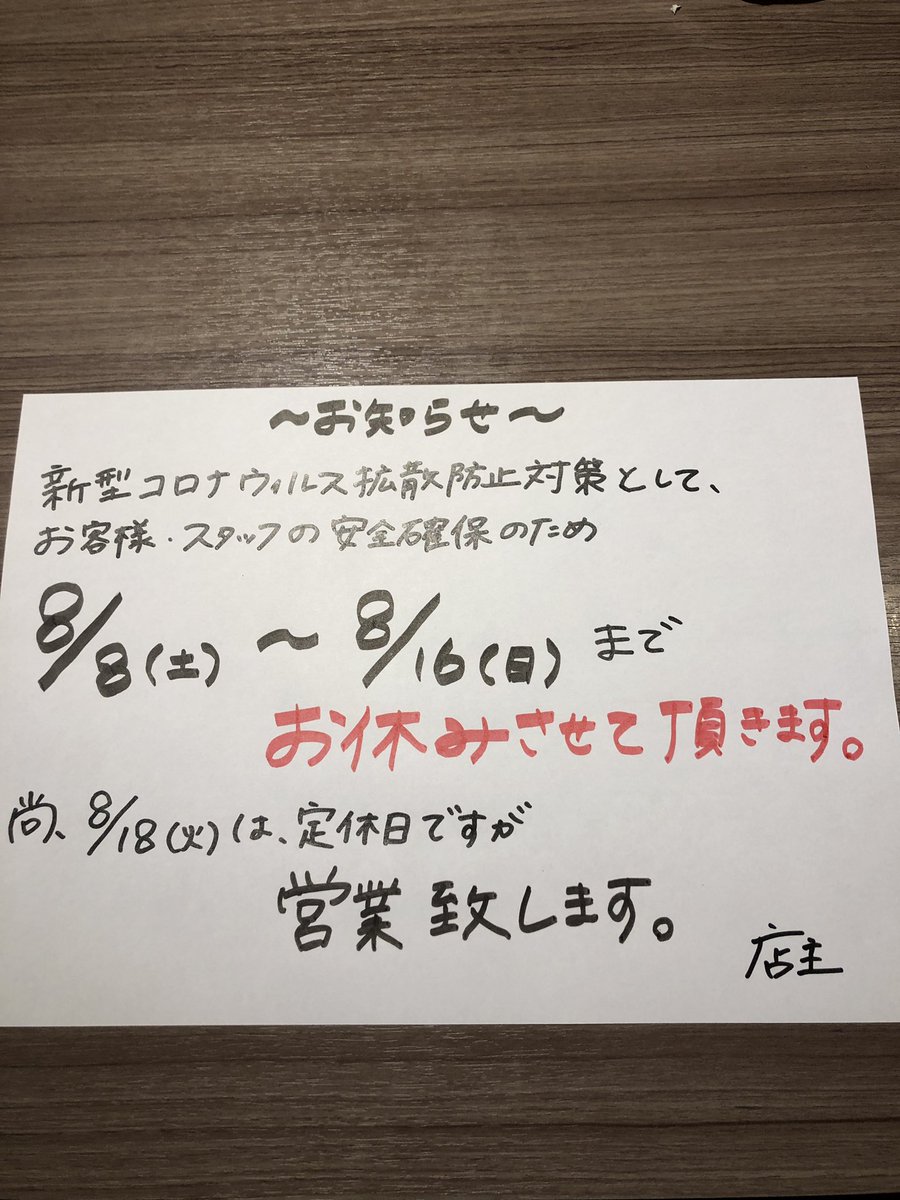 〜お知らせ〜
新型コロナウィルス拡散防止対策として、
お客様・スタッフの安全確保のため
8/8(土) 〜 8/16(日) まで
お休みさせて頂きます。
尚、8/18(火)は、定休日ですが
営業致します。
店主